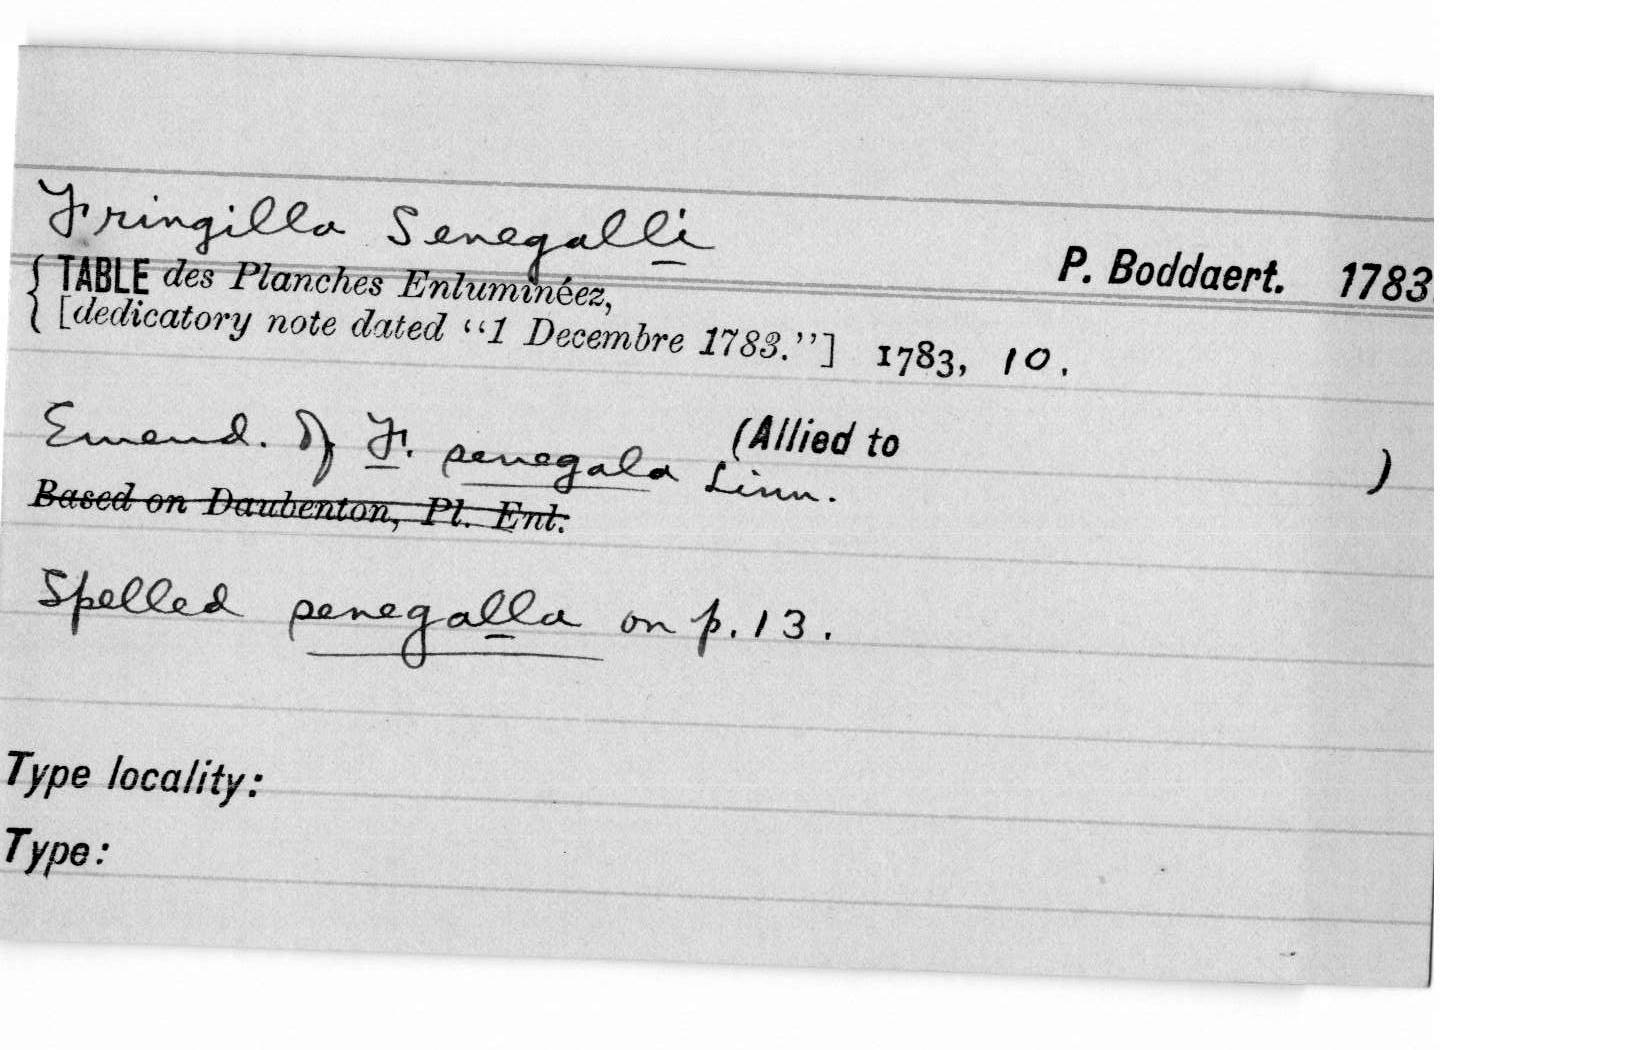 Fringilla Senegalli
P. Boddaert. 1783
TABLE des Planches Enluminéez,
[dedicatory note dated "1 Decembre 1783."] 1783, 10.
(Allied to )
Emend. of F. senegala Linn.
Based on Daubenton, Pl. Enl.
Spelled senegalla on p. 13.
Type locality:
Type: